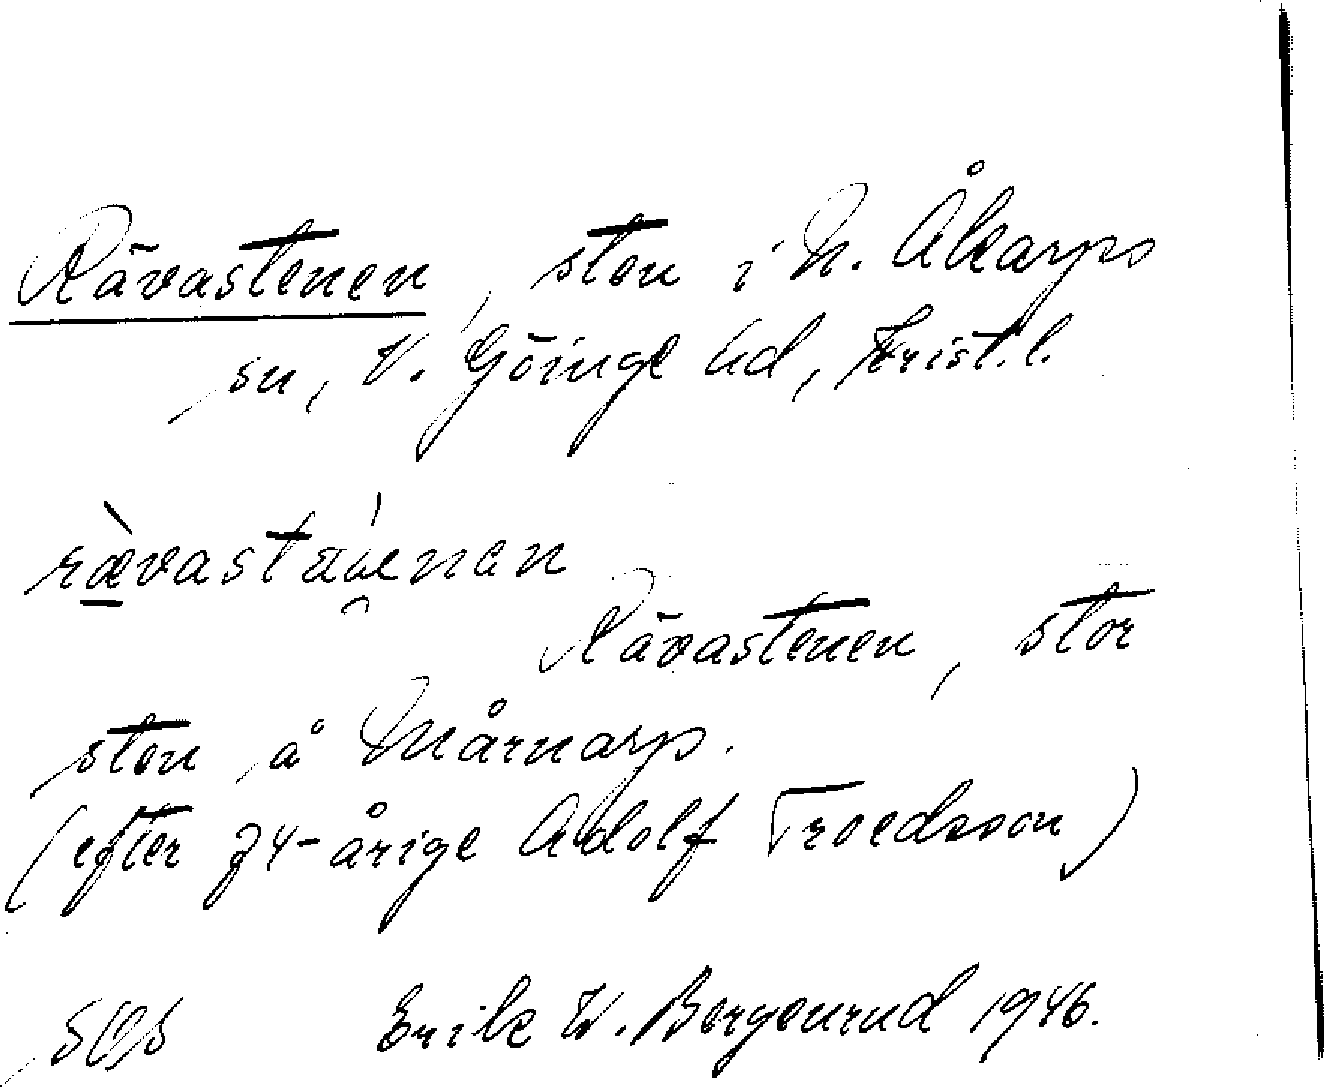 Rävastenen, sten i N. Åkarps
sn, V. Göinge hd, Krist. l.
rævastäenen
Rävastenen, stor
sten å Mårnarp.
(efter 74-årige Adolf Troedsson)
Erik W. Bergenrud 1946.